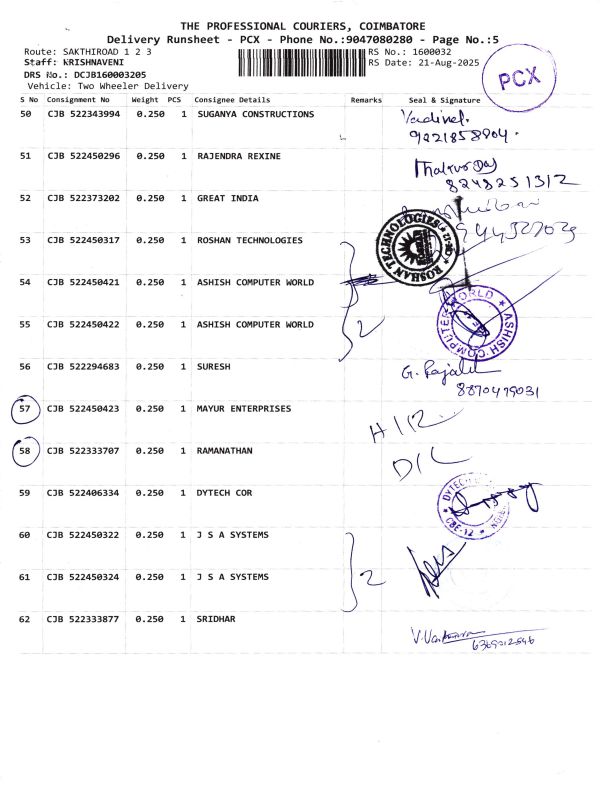 THE PROFESSIONAL COURIERS, COIMBATORE
Delivery Runsheet - PCX - Phone No.:9047080280 - Page No.:5
Route: SAKTHIROAD 1 2 3
RS No.: 1600032
Staff: KRISHNAVENI
RS Date: 21-Aug-2025
DRS No.: DCJB160003205
Vehicle: Two Wheeler Delivery
PCX
S No Consignment No Weight PCS Consignee Details Remarks Seal & Signature
50 CJB 522343994 0.250 1 SUGANYA CONSTRUCTIONS
51 CJB 522450296 0.250 1 RAJENDRA REXINE
8248251312
52 CJB 522373202 0.250 1 GREAT INDIA
53 CJB 522450317 0.250 1 ROSHAN TECHNOLOGIES
ROSHAN TECHNOLOGIES
54 CJB 522450421 0.250 1 ASHISH COMPUTER WORLD
2
55 CJB 522450422 0.250 1 ASHISH COMPUTER WORLD
ASHISH COMPUTER WORLD
56 CJB 522294683 0.250 1 SURESH
8870479031
57 CJB 522450423 0.250 1 MAYUR ENTERPRISES
58 CJB 522333707 0.250 1 RAMANATHAN
D/L
59 CJB 522406334 0.250 1 DYTECH COR
DYTECH
CBE-12
60 CJB 522450322 0.250 1 J S A SYSTEMS
2
61 CJB 522450324 0.250 1 J S A SYSTEMS
62 CJB 522333877 0.250 1 SRIDHAR